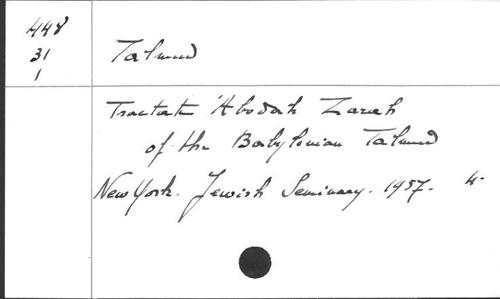 448
31
1
Talmud
Tractate 'Abodah Zarah
of the Babylonian Talmud
New York. Jewish Seminary. 1957. 4°